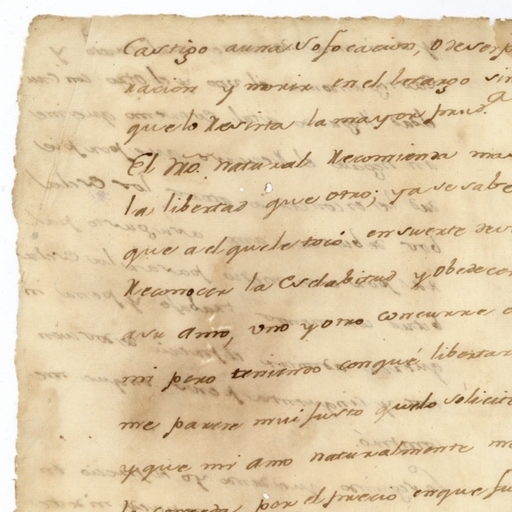 Castigo auna sofocacion, o deserp
racion y morir en el letargo sin
que lo Resista la mayor prud.ª
El dro. natural Recomienda mas
la libertad que otro; ya se sabe
que a el que le tocó en suerte deve
Reconocer la Esclabitud y obedecer
a su Amo, uno y otro concurre e
mi pero teniendo conqué libertar
me parece mui justo que lo solicite
y que mi amo naturalmente me
lo conceda por el precio enque fu